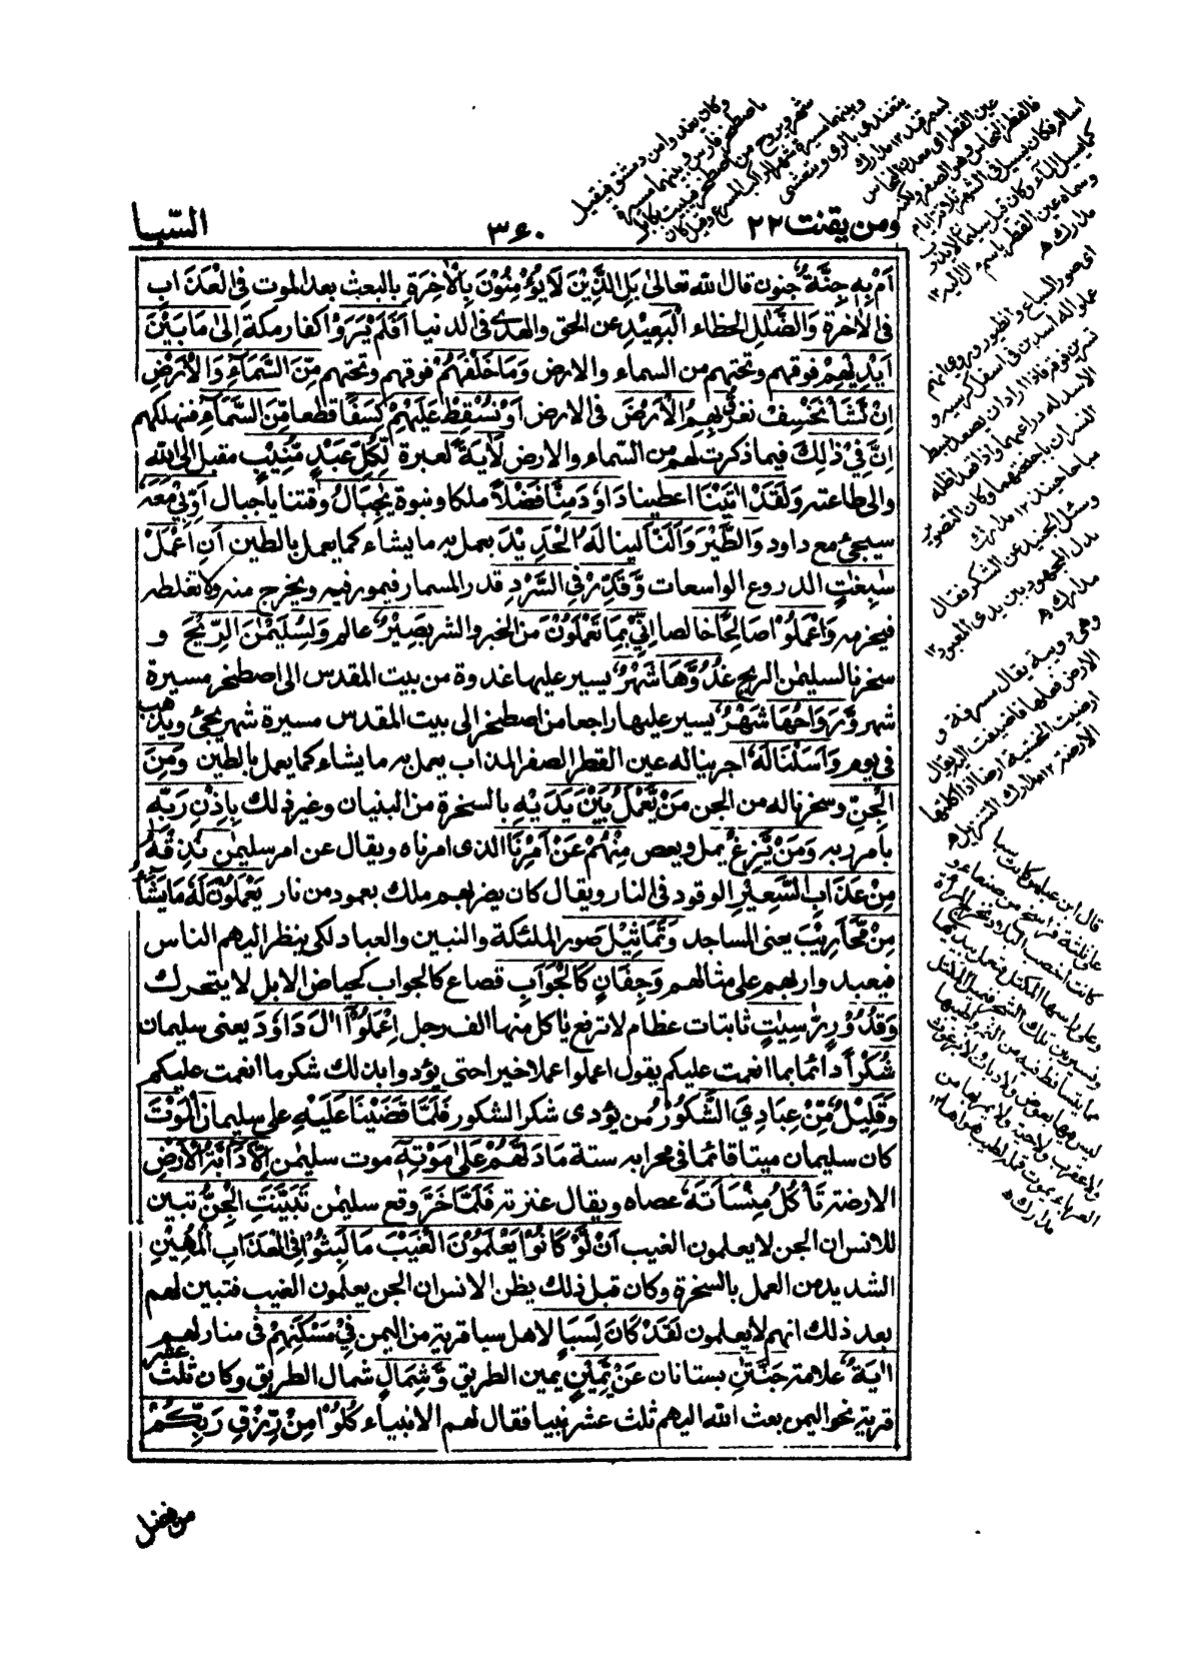 ومن يقنت ٢٢
٣٦٠
السّبا
اَمْ بِهٖ جِنَّةٌ جنون قال الله تعالى بَلِ الَّذِيْنَ لَا يُؤْمِنُوْنَ بِالْاٰخِرَةِ بالبعث بعد الموت فِى الْعَذَابِ
فى الاٰخرة وَالضَّلٰلِ الخطاء الْبَعِيْدِ عن الحق والهدى فى الدنيا اَفَلَمْ يَرَوْا كفار مكة اِلٰى مَا بَيْنَ
اَيْدِيْهِمْ فوقهم وتحتهم من السماء والارض وَمَا خَلْفَهُمْ فوقهم وتحتهم مِّنَ السَّمَآءِ وَالْاَرْضِ
اِنْ نَّشَأْ نَخْسِفْ نغرق بِهِمُ الْاَرْضَ فى الارض اَوْ نُسْقِطْ عَلَيْهِمْ كِسَفًا قطعا مِّنَ السَّمَآءِ فنهلكهم
اِنَّ فِىْ ذٰلِكَ فيما ذكرت لهم من السماء والارض لَاٰيَةً لعبرة لِّكُلِّ عَبْدٍ مُّنِيْبٍ مقبل الى الله
والى طاعته وَلَقَدْ اٰتَيْنَا اعطينا دَاوٗدَ مِنَّا فَضْلًا ملكا ونبوة يٰجِبَالُ وقلنا يا جبال اَوِّبِىْ مَعَهٗ
سبحى مع داود وَالطَّيْرَ وَاَلَنَّا لينا لَهُ الْحَدِيْدَ يعمل به ما يشاء كما يعمل بالطين اَنِ اعْمَلْ
سٰبِغٰتٍ الدروع الواسعات وَّقَدِّرْ فِى السَّرْدِ قدر المسمار فيمور فيه ويخرج منه ولا تغلظه
فيخرمه وَاعْمَلُوْا صَالِحًا خالصا اِنِّىْ بِمَا تَعْمَلُوْنَ من الخير والشر بَصِيْرٌ عالم وَلِسُلَيْمٰنَ الرِّيْحَ و
سخرنا لسليمٰن الريح غُدُوُّهَا شَهْرٌ يسير عليها غدوة من بيت المقدس الى اصطخر مسيرة
شهر وَّرَوَاحُهَا شَهْرٌ يسير عليها راجعا من اصطخر الى بيت المقدس مسيرة شهر يجئ ويذهب
فى يوم وَاَسَلْنَا لَهٗ اجرينا له عين القطر الصفر المذاب يعمل به ما يشاء كما يعمل بالطين وَمِنَ
الْجِنِّ وسخرنا له من الجن مَنْ يَّعْمَلُ بَيْنَ يَدَيْهِ بالسخرة من البنيان وغير ذلك بِاِذْنِ رَبِّهٖ
بامر ربه وَمَنْ يَّزِغْ يمل ويعص مِنْهُمْ عَنْ اَمْرِنَا الذى امرناه ويقال عن امر سليمٰن نُذِقْهُ
مِنْ عَذَابِ السَّعِيْرِ الوقود فى النار ويقال كان يضربهم ملك بعمود من نار يَعْمَلُوْنَ لَهٗ مَا يَشَآءُ
مِنْ مَّحَارِيْبَ يعنى المساجد وَتَمَاثِيْلَ صور الملئكة والنبين والعباد لكى ينظر اليهم الناس
فيعبدوا ربهم على مثالهم وَجِفَانٍ كَالْجَوَابِ قصاع كالجواب كحياض الابل لا يتحرك
وَقُدُوْرٍ رّٰسِيٰتٍ ثابتات عظام لا ترفع ياكل منها الف رجل اِعْمَلُوْا اٰلَ دَاوٗدَ يعنى سليمان
شُكْرًا دائما بما انعمت عليكم يقول اعملوا عملا خيرا حتى يؤدوا بذلك شكر ما انعمت عليكم
وَقَلِيْلٌ مِّنْ عِبَادِىَ الشَّكُوْرُ من يؤدى شكر الشكور فَلَمَّا قَضَيْنَا عَلَيْهِ على سليمان الْمَوْتَ
كان سليمان ميتا قائما فى محرابه سنة مَا دَلَّهُمْ عَلٰى مَوْتِهٖٓ موت سليمٰن اِلَّا دَآبَّةُ الْاَرْضِ
الارضة تَأْكُلُ مِنْسَاَتَهٗ عصاه ويقال عنزته فَلَمَّا خَرَّ وقع سليمٰن تَبَيَّنَتِ الْجِنُّ تبين
للانس ان الجن لا يعلمون الغيب اَنْ لَّوْ كَانُوْا يَعْلَمُوْنَ الْغَيْبَ مَا لَبِثُوْا فِى الْعَذَابِ الْمُهِيْنِ
الشديد من العمل بالسخرة وكان قبل ذلك يظن الانس ان الجن يعلمون الغيب فتبين لهم
بعد ذلك انهم لا يعلمون لَقَدْ كَانَ لِسَبَاٍ لاهل سبا قرية من اليمن فِىْ مَسْكَنِهِمْ فى منازلهم
اٰيَةٌ علامة جَنَّتٰنِ بستانان عَنْ يَّمِيْنٍ يمين الطريق وَّشِمَالٍ شمال الطريق وكان ثلث عشر
قرية نحو اليمن بعث الله اليهم ثلث عشر نبيا فقال لهم الانبياء كُلُوْا مِنْ رِّزْقِ رَبِّكُمْ
من فضل
وكان يغدو من دمشق فيقيل
باصطخر فارس وبينهما مسيرة
شهر ويروح من اصطخر فيبيت بكابل
وبينهما مسيرة شهر للراكب المسرع وقيل كان
يتغدى بالرى ويتعشى
بسمرقند ١٢ مدارك
عين القطر اى معدن النحاس
فالقطر النحاس وهو الصفر ولكنه
اساله وكان يسيل فى الشهر ثلاثة ايام
كما يسيل الماء وكان قبل سليمان لا يذوب
وسماه عين القطر باسم ما آل اليه ١٢
مدارك
اى صور السباع والطيور وروى انهم
عملوا له اسدين فى اسفل كرسيه و
نسرين فوقه فاذا اراد ان يصعد بسط
الاسدان له ذراعيهما واذا قعد اظله
النسران باجنحتهما وكان التصوير
مباحا حينئذ ١٢ مدارك
وسئل الجنيد عن الشكر فقال
بذل المجهود بين يدى المعبود ١٢
مدارك
وهى دويبة يقال سرفة و
الارض فعلها فاضيفت اليه يقال
ارضت الخشبة ارضا اذا اكلتها
الارضة ١٢ مدارك التنزيل
قال ابن عباس كانت سبا
على ثلثة فراسخ من صنعاء و
كانت اخصب البلاد وتخرج المرأة
وعلى راسها المكتل فتعمل بيديها
وتسير بين تلك الشجر فيمتلئ المكتل
مما يتساقط فيه من الثمر وطيبها
ليس فيها بعوض ولا ذباب ولا برغوث
ولا عقرب ولا حية ومن يمر بها من
الغرباء يموت قمله لطيب هوائها ١٢
مدارك